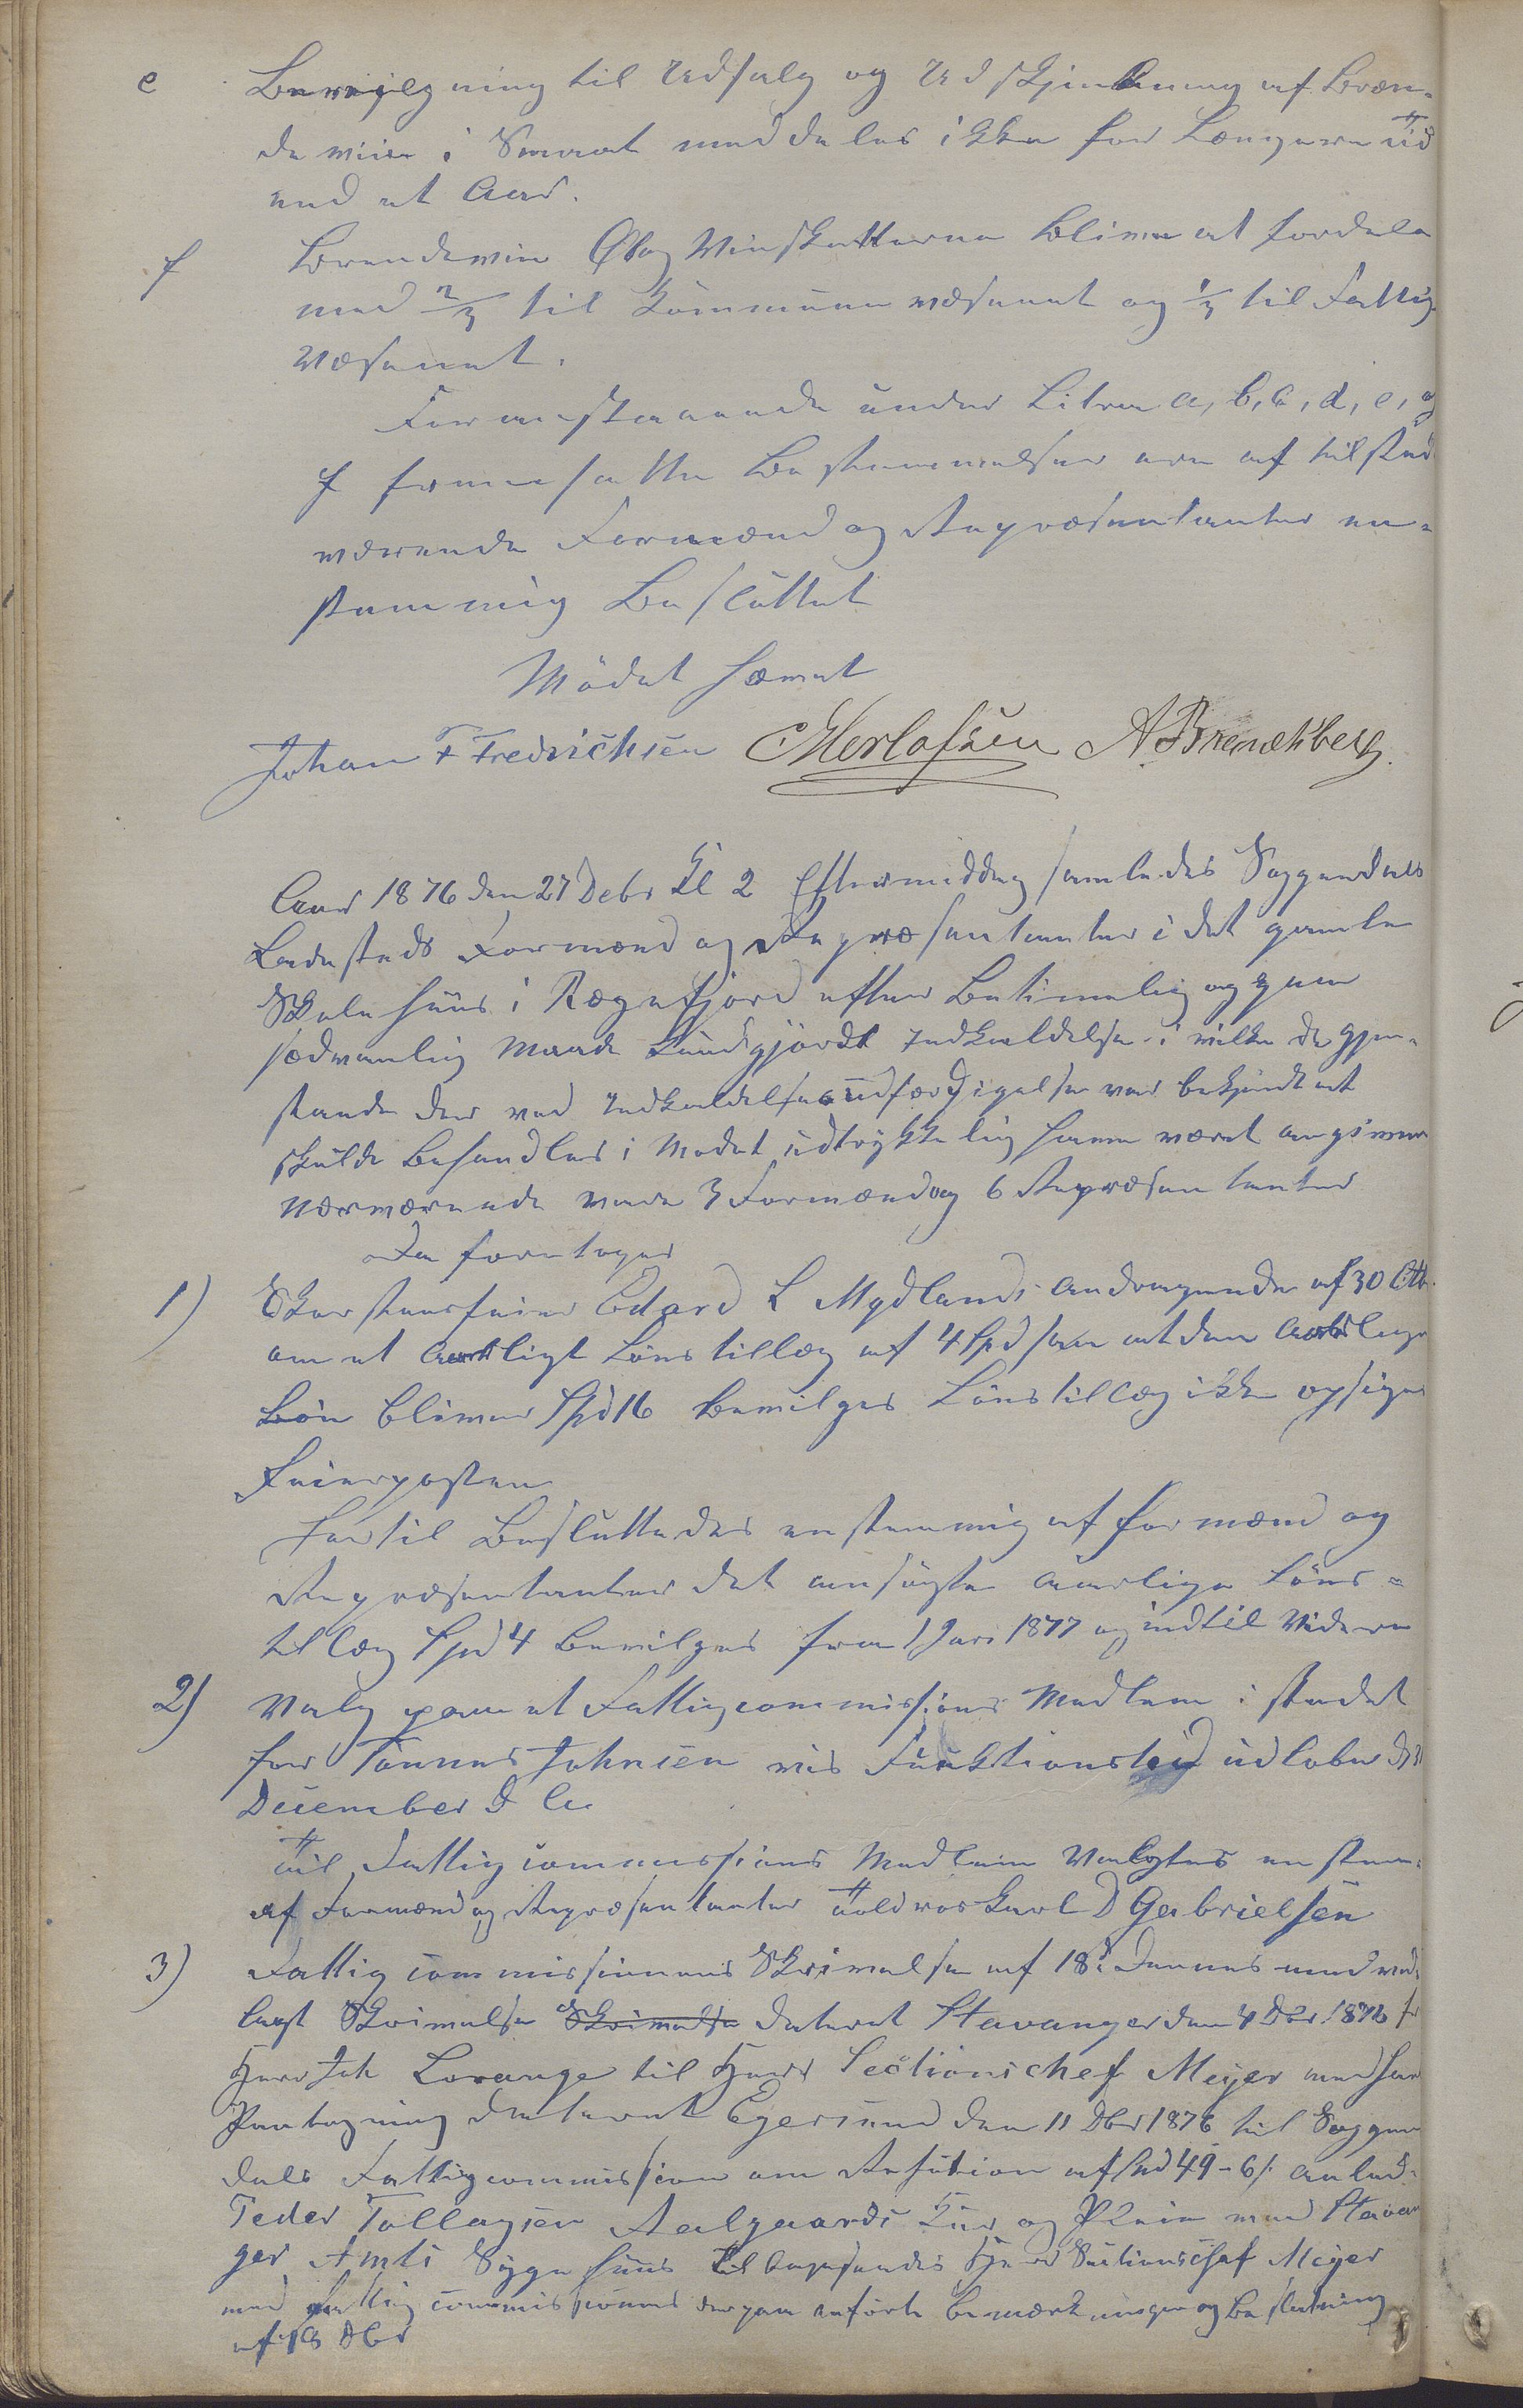 e Bevilgning til Udsalg og Udskjænkning af Bræn-
deviin i Smaat meddeles ikke for Længere Tid
end et Aar.
f Brendevin Øl og Vinskatterne blive at fordele
med 2/3 til Kommunevæsenet og 1/3 til Fattig-
væsenet.
Foranstaaende under Litra a, b, c, d, e, og
f fremsatte Bestemmelser ere af tilstede
værende Formænd og Repræsentanter een-
stemmig Besluttet
Mödet hævet
Johan F Fredrichsen C Herlofsen A Brenækberg.
Aar 1876 den 27 Debr Kl 2 Eftermiddag samledes Soggendals
Ladesteds Formænd og Repræsentanter i det gamle
Skolehuus i Rægefjord efter Betimelig og paa
sædvanlig Maade Kundgjördt Indkaldelse i vilke de Gjen-
stande der ved Indkaldelsens udfærdigelse var bekjendt at
skulde Behandles i Mödet udtrykkelig have været angivne
Nærværende vare 3 Formænd og 6 Repræsentanter
Da foretoges
1) Skorstensfeier Edard L Mydlands Andragende af 30 Otb.
om et Aarligt Lönstillæg af 4 Spd saa at den Aarlige
Lön bliver Spd 16 Bevilges Lönstillæg ikke opsiges
Feierposten
Hertil Besluttedes enstemmig af Formænd og
Repræsentanter det ansögte Aarlige Löns-
tillæg Spd 4 Bevilges fra 1 Jan 1877 og indtil Videre
2) Valg paa et Fattigcommissions Medlem i stedet
for Tönnes Johnsen vis Funktionstid udlöber d 31
December d A.
Til Fattigcommissions Medlem Valgtes enstem.
af Formænd og Repræsentanter Toldros Karl D Gabrielsen
3) Fattigcommissionens Skrivelse af 18de Dennes med ved-
lagt Skrivelse Skrivelse dateret Stavanger den 4 Dbr 1876 fr
Herr Joh Lorange til Herr Sectionschef Meyer med hans
Paategning dateret Egersund den 11 Dbr 1876 til Soggen
dals Fattigcommission om Refution af Spd 49 - 6 s. Anled.
Peder Tollagsen Aalgaards Kur og Pleie ved Stavan
ger Amts Sygehuus tilbagesendes Herr Sectionschef Meyer
med Fattigcommissionens derpaa anförte bemærkninger og beslutning
af 18 Dbr